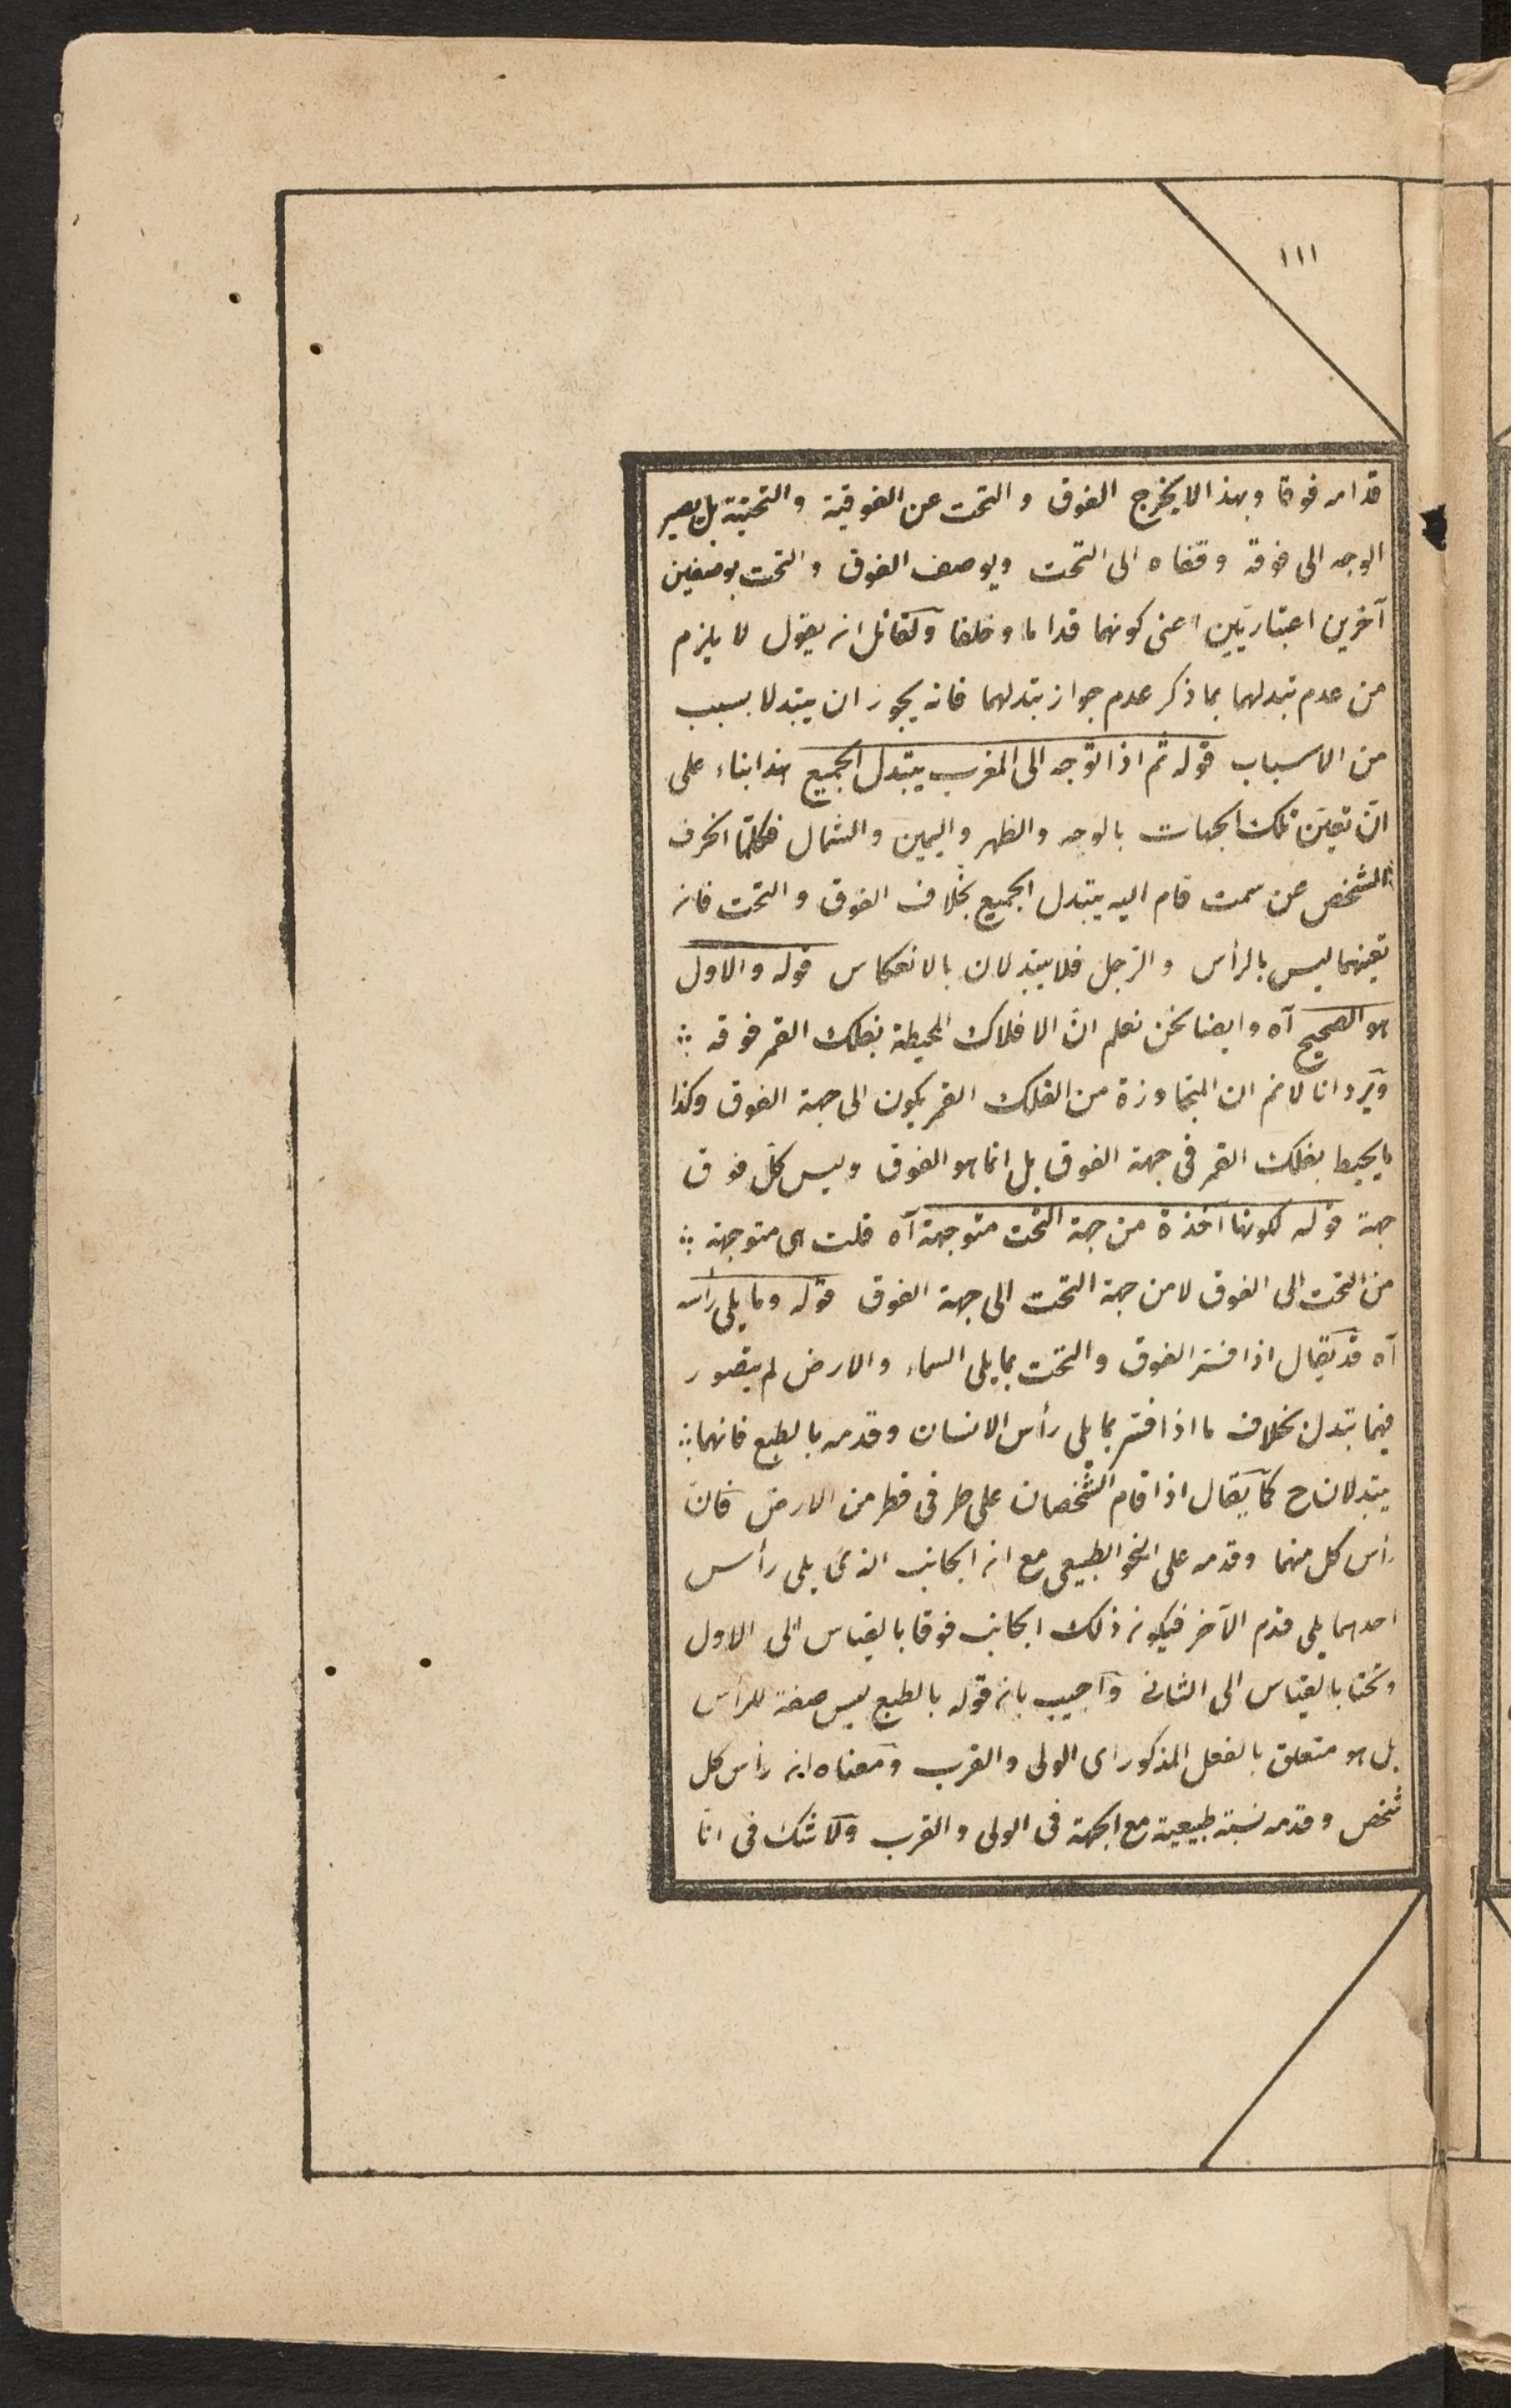 ١١١
قدامه فوقا وبهذا لا يخرج الفوق والتحت عن الفوقية والتحتية بل يصير
الوجه الى فوقه وقفاه الى التحت ويوصف الفوق والتحت بوصفين
آخرين اعتباريين اعنى كونهما قداما وخلفا ولقائل ان يقول لا يلزم
من عدم تبدلهما بما ذكر عدم جواز تبدلهما فانه يجوز ان يتبدلا بسبب
من الاسباب قوله ثم اذا توجه الى المغرب يتبدل الجميع هذا بناء على
انّ تعيّن تلك الجهات بالوجه والظهر واليمين والشمال فكلّما انحرف
الشخص عن سمت قام اليه يتبدل الجميع بخلاف الفوق والتحت فانه
تعينهما ليس بالرأس والرّجل فلا يتبدّلان بالانعكاس قوله والاول
هو الصحيح آه وايضا نحن نعلم انّ الافلاك المحيطة بفلك القمر فوقه ؞
ويرد انا لا نم ان المتجاوزة من الفلك القمر يكون الى جهة الفوق وكذا
ما يحيط بفلك القمر فى جهة الفوق بل انما هو الفوق وليس كلّ فوق
جهة قوله لكونها آخذة من جهة التحت متوجهة آه قلت هى متوجهة ؞
من التحت الى الفوق لا من جهة التحت الى جهة الفوق قوله وما يلى رأسه
آه قد يقال اذا فسّر الفوق والتحت بما يلى السماء والارض لم يتصور
فيهما تبدل بخلاف ما اذا فسّر بما يلى رأس الانسان وقدمه بالطبع فانهما ؞
يتبدلان ح كما يقال اذا قام الشّخصان على طرفى قطر من الارض فانّ
رأس كل منهما وقدمه على النحو الطبيعى مع ان الجانب الذى يلى رأس
احدهما يلى قدم الآخر فيكون ذلك الجانب فوقا بالقياس الى الاول
وتحتا بالقياس الى الثانى واجيب بان قوله بالطبع ليس صفة للرأس
بل هو متعلق بالفعل المذكور اى الولى والقرب ومعناه ان رأس كل
شخص وقدمه نسبة طبيعية مع الجهة فى الولى والقرب ولا شك فى انّا